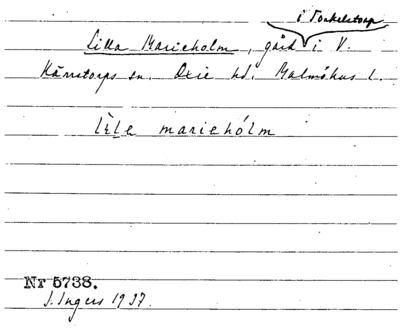 i Torkelstorp
Lilla Marieholm, gård i V.
Kärrstorps sn. Oxie hd. Malmöhus l.
lìla mariehólm
Nr 5738.
I. Ingers 1937.